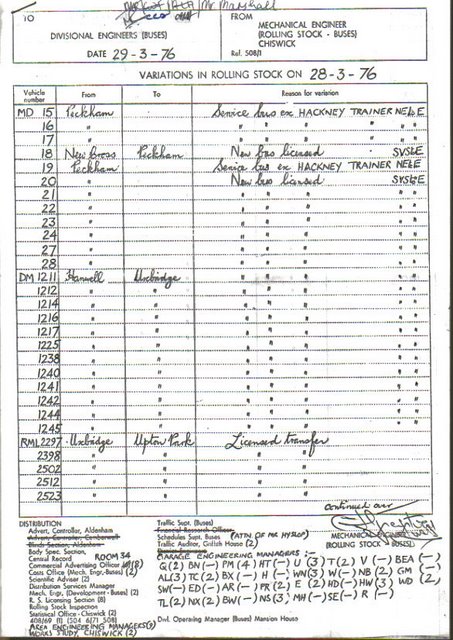 TO
DIVISIONAL ENGINEERS (BUSES)
DATE 29-3-76
FROM
MECHANICAL ENGINEER
(ROLLING STOCK - BUSES)
CHISWICK
Ref. 508/1
VARIATIONS IN ROLLING STOCK ON 28-3-76
Vehicle number From To Reason for variation
MD 15 Peckham Service bus ex HACKNEY TRAINER NELE
16 " " " " " " "
17 " " " " " " "
18 New Cross Peckham New bus licensed SVSLE
19 Peckham Service bus ex HACKNEY TRAINER NELE
20 " New bus licensed SVSLE
21 " " " " " "
22 " " " " " "
23 " " " " " "
24 " " " " " "
27 " " " " " "
28 " " " " " "
DM 1211 Hanwell Uxbridge " " " " "
1212 " " " " " " "
1214 " " " " " " "
1216 " " " " " " "
1217 " " " " " " "
1225 " " " " " " "
1238 " " " " " " "
1240 " " " " " " "
1241 " " " " " " "
1242 " " " " " " "
1244 " " " " " " "
1245 " " " " " " "
RML 2297 Uxbridge Upton Park Licensed transfer
2398 " " " "
2502 " " " "
2512 " " " "
2523 " " " "
continued over
MECHANICAL ENGINEER
(ROLLING STOCK - BUSES)
DISTRIBUTION
Advert. Controller, Aldenham
Advert. Controller, Camberwell
Body Spec. Section,
Central Record ROOM 34
Commercial Advertising Officer (18)
Costs Office (Mech. Engr.-Buses) (2)
Scientific Adviser (2)
Distribution Services Manager
Mech. Engr. (Development - Buses) (2)
R. S. Licensing Section (8)
Rolling Stock Inspection
Statistical Office - Chiswick (2)
408/69 (1) (504 6/7) 508
AREA ENGINEERING MANAGERS(9)
WORKS STUDY, CHISWICK (2)
Traffic Supt. (Buses)
Financial Research Officer
Schedules Supt. Buses (ATTN OF MR HYSLOP)
Traffic Auditor, Griffith House (2)
GARAGE ENGINEERING MANAGERS :-
Q(2) BN(-) PM(4) HT(-) U(3) T(2) V(-) BEA(-)
AL(3) TC(2) BX(-) H(-) WN(3) W(-) NB(2) CM(-)
SW(-) ED(-) AR(-) FR(2) E(2) HD(-) HW(3) WD(2)
TL(2) NX(2) BW(-) NS(3) MH(-) SE(-) R(-)
Divl. Operating Manager (Buses) Mansion House